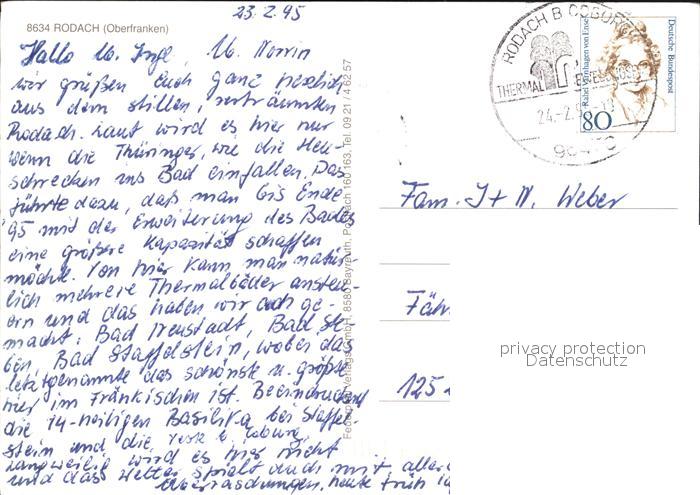 23.2.95
8634 RODACH (Oberfranken)
Hallo lb. Inge, lb. Norrin
wir grüßen Euch ganz herzlich
aus dem stillen, verträumten
Rodach. Laut wird es hier nur
wenn die Thüringer, wie die Heu-
schrecken ins Bad einfallen. Das
führte dazu, daß man bis Ende
'95 mit der Erweiterung des Bades
eine größere Kapazität schaffen
möchte. Von hier kann man natür-
lich mehrere Thermalbäder ansteu-
ern und das haben wir auch ge-
macht. Bad Neustadt, Bad Ste-
ben, Bad Staffelstein, wobei das
letztgenannte das schönste u. größte
hier im Fränkischen ist. Beeindruckend
die 14-heiligen Basilika bei Staffel-
stein und die Coburg,
langweilig wird es hier nicht
und das Wetter spielt auch mit, aller
Überraschungen, heute früh
Verlags GmbH, 8580 Bayreuth, Postfach 160 163, Tel. 09 21 / 4 62 57
RODACH B COBURG
THERMAL
24.-2.
Rahel Varnhagen von Ense
Deutsche Bundespost
80
Fam. J + N. Weber
Fähr
125
privacy protection
Datenschutz